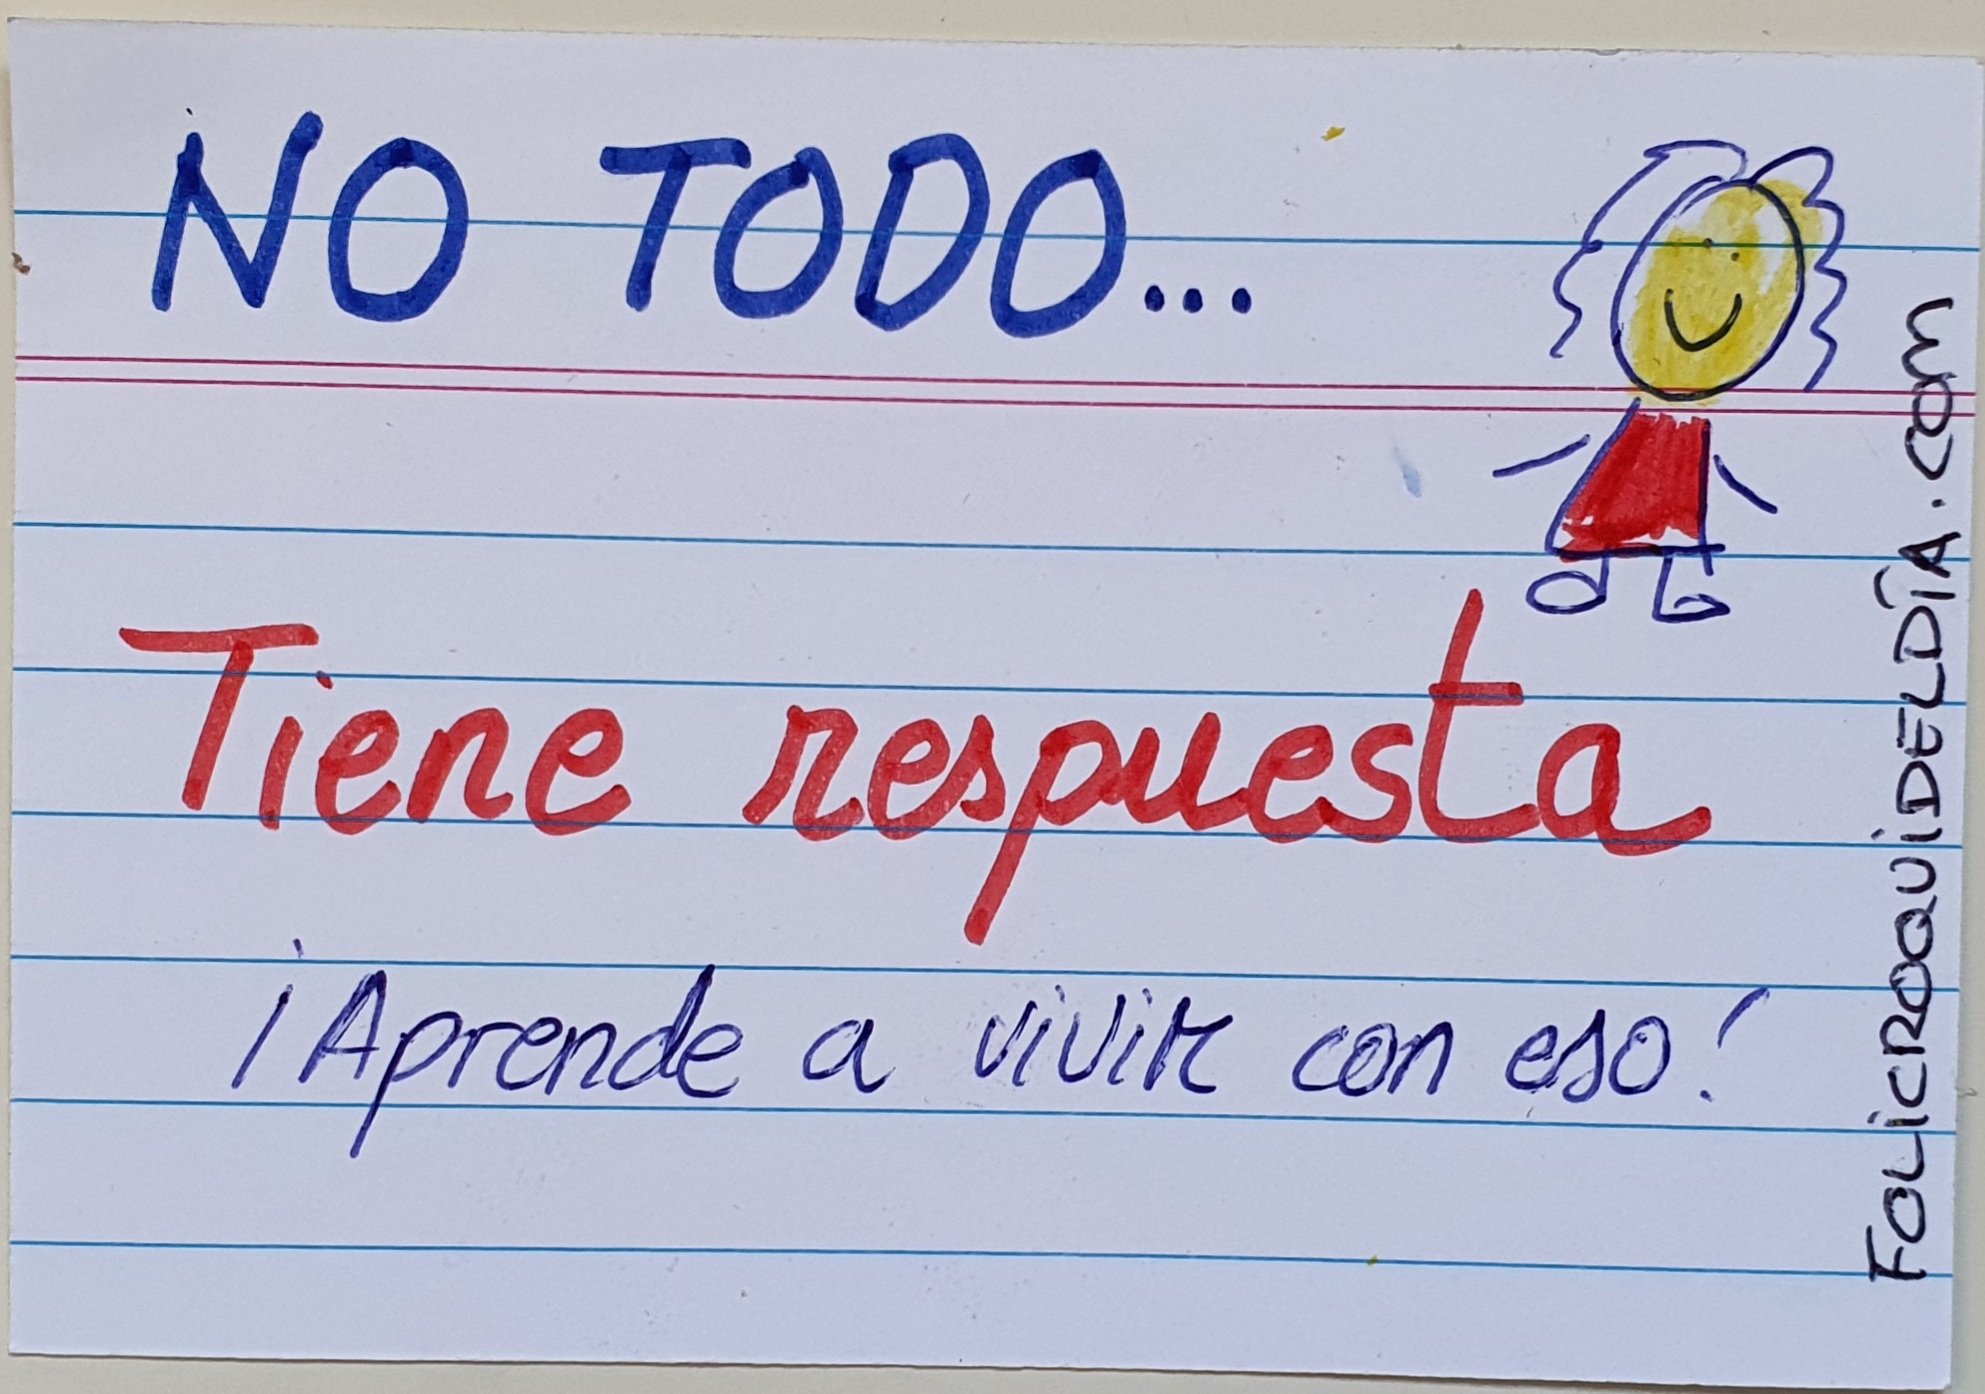 NO TODO...
Tiene respuesta
¡Aprende a vivir con eso!
FOLiCROQUiDELDÍA.com